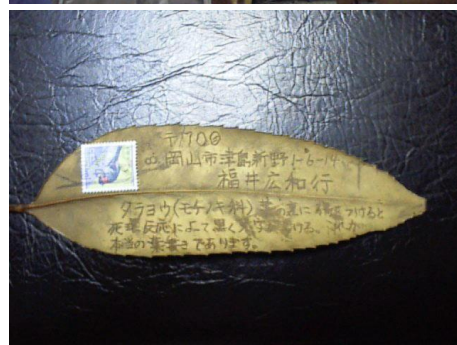 〒700
岡山市津島新野1-6-14
福井広和行
タラヨウ(モチノキ科) 葉の裏に傷をつけると
死環反応によって黒く文字が書ける。これが
本当の葉書きであります。